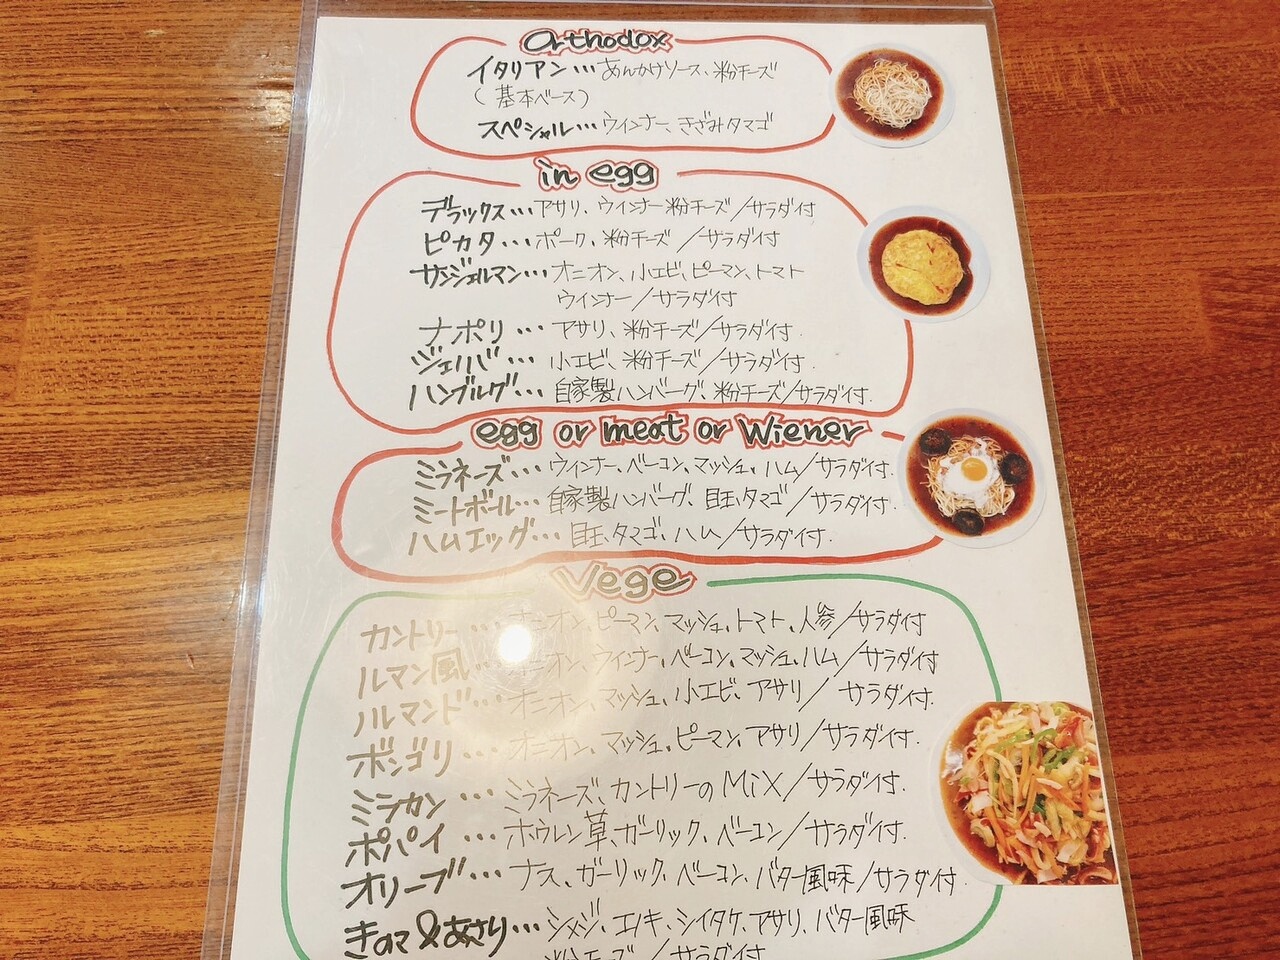 Orthodox
イタリアン…あんかけソース、粉チーズ
(基本ベース)
スペシャル…ウィンナー、きざみタマゴ
in egg
デラックス…アサリ、ウインナー粉チーズ/サラダ付
ピカタ…ポーク、粉チーズ/サラダ付
サンジェルマン…オニオン、小エビ、ピーマン、トマト
ウインナー/サラダ付
ナポリ…アサリ、粉チーズ/サラダ付.
ジェノバ…小エビ、粉チーズ/サラダ付.
ハンブルグ…自家製ハンバーグ、粉チーズ/サラダ付.
egg or meat or Wiener
ミラネーズ…ウィンナー、ベーコン、マッシュ、ハム/サラダ付.
ミートボール…自家製ハンバーグ、目玉タマゴ/サラダ付.
ハムエッグ…目玉タマゴ、ハム/サラダ付.
Vege
カントリー…オニオン、ピーマン、マッシュ、トマト、人参/サラダ付
ルマン風…オニオン、ウィンナー、ベーコン、マッシュ、ハム/サラダ付
ノルマンド…オニオン、マッシュ、小エビ、アサリ/サラダ付.
ボンゴリ…オニオン、マッシュ、ピーマン、アサリ/サラダ付.
ミラカン…ミラネーズ、カントリーのMiX/サラダ付.
ポパイ…ホウレン草、ガーリック、ベーコン/サラダ付.
オリーブ…ナス、ガーリック、ベーコン、バター風味/サラダ付.
きのこ&あさり…シメジ、エノキ、シイタケ、アサリ、バター風味
粉チーズ/サラダ付